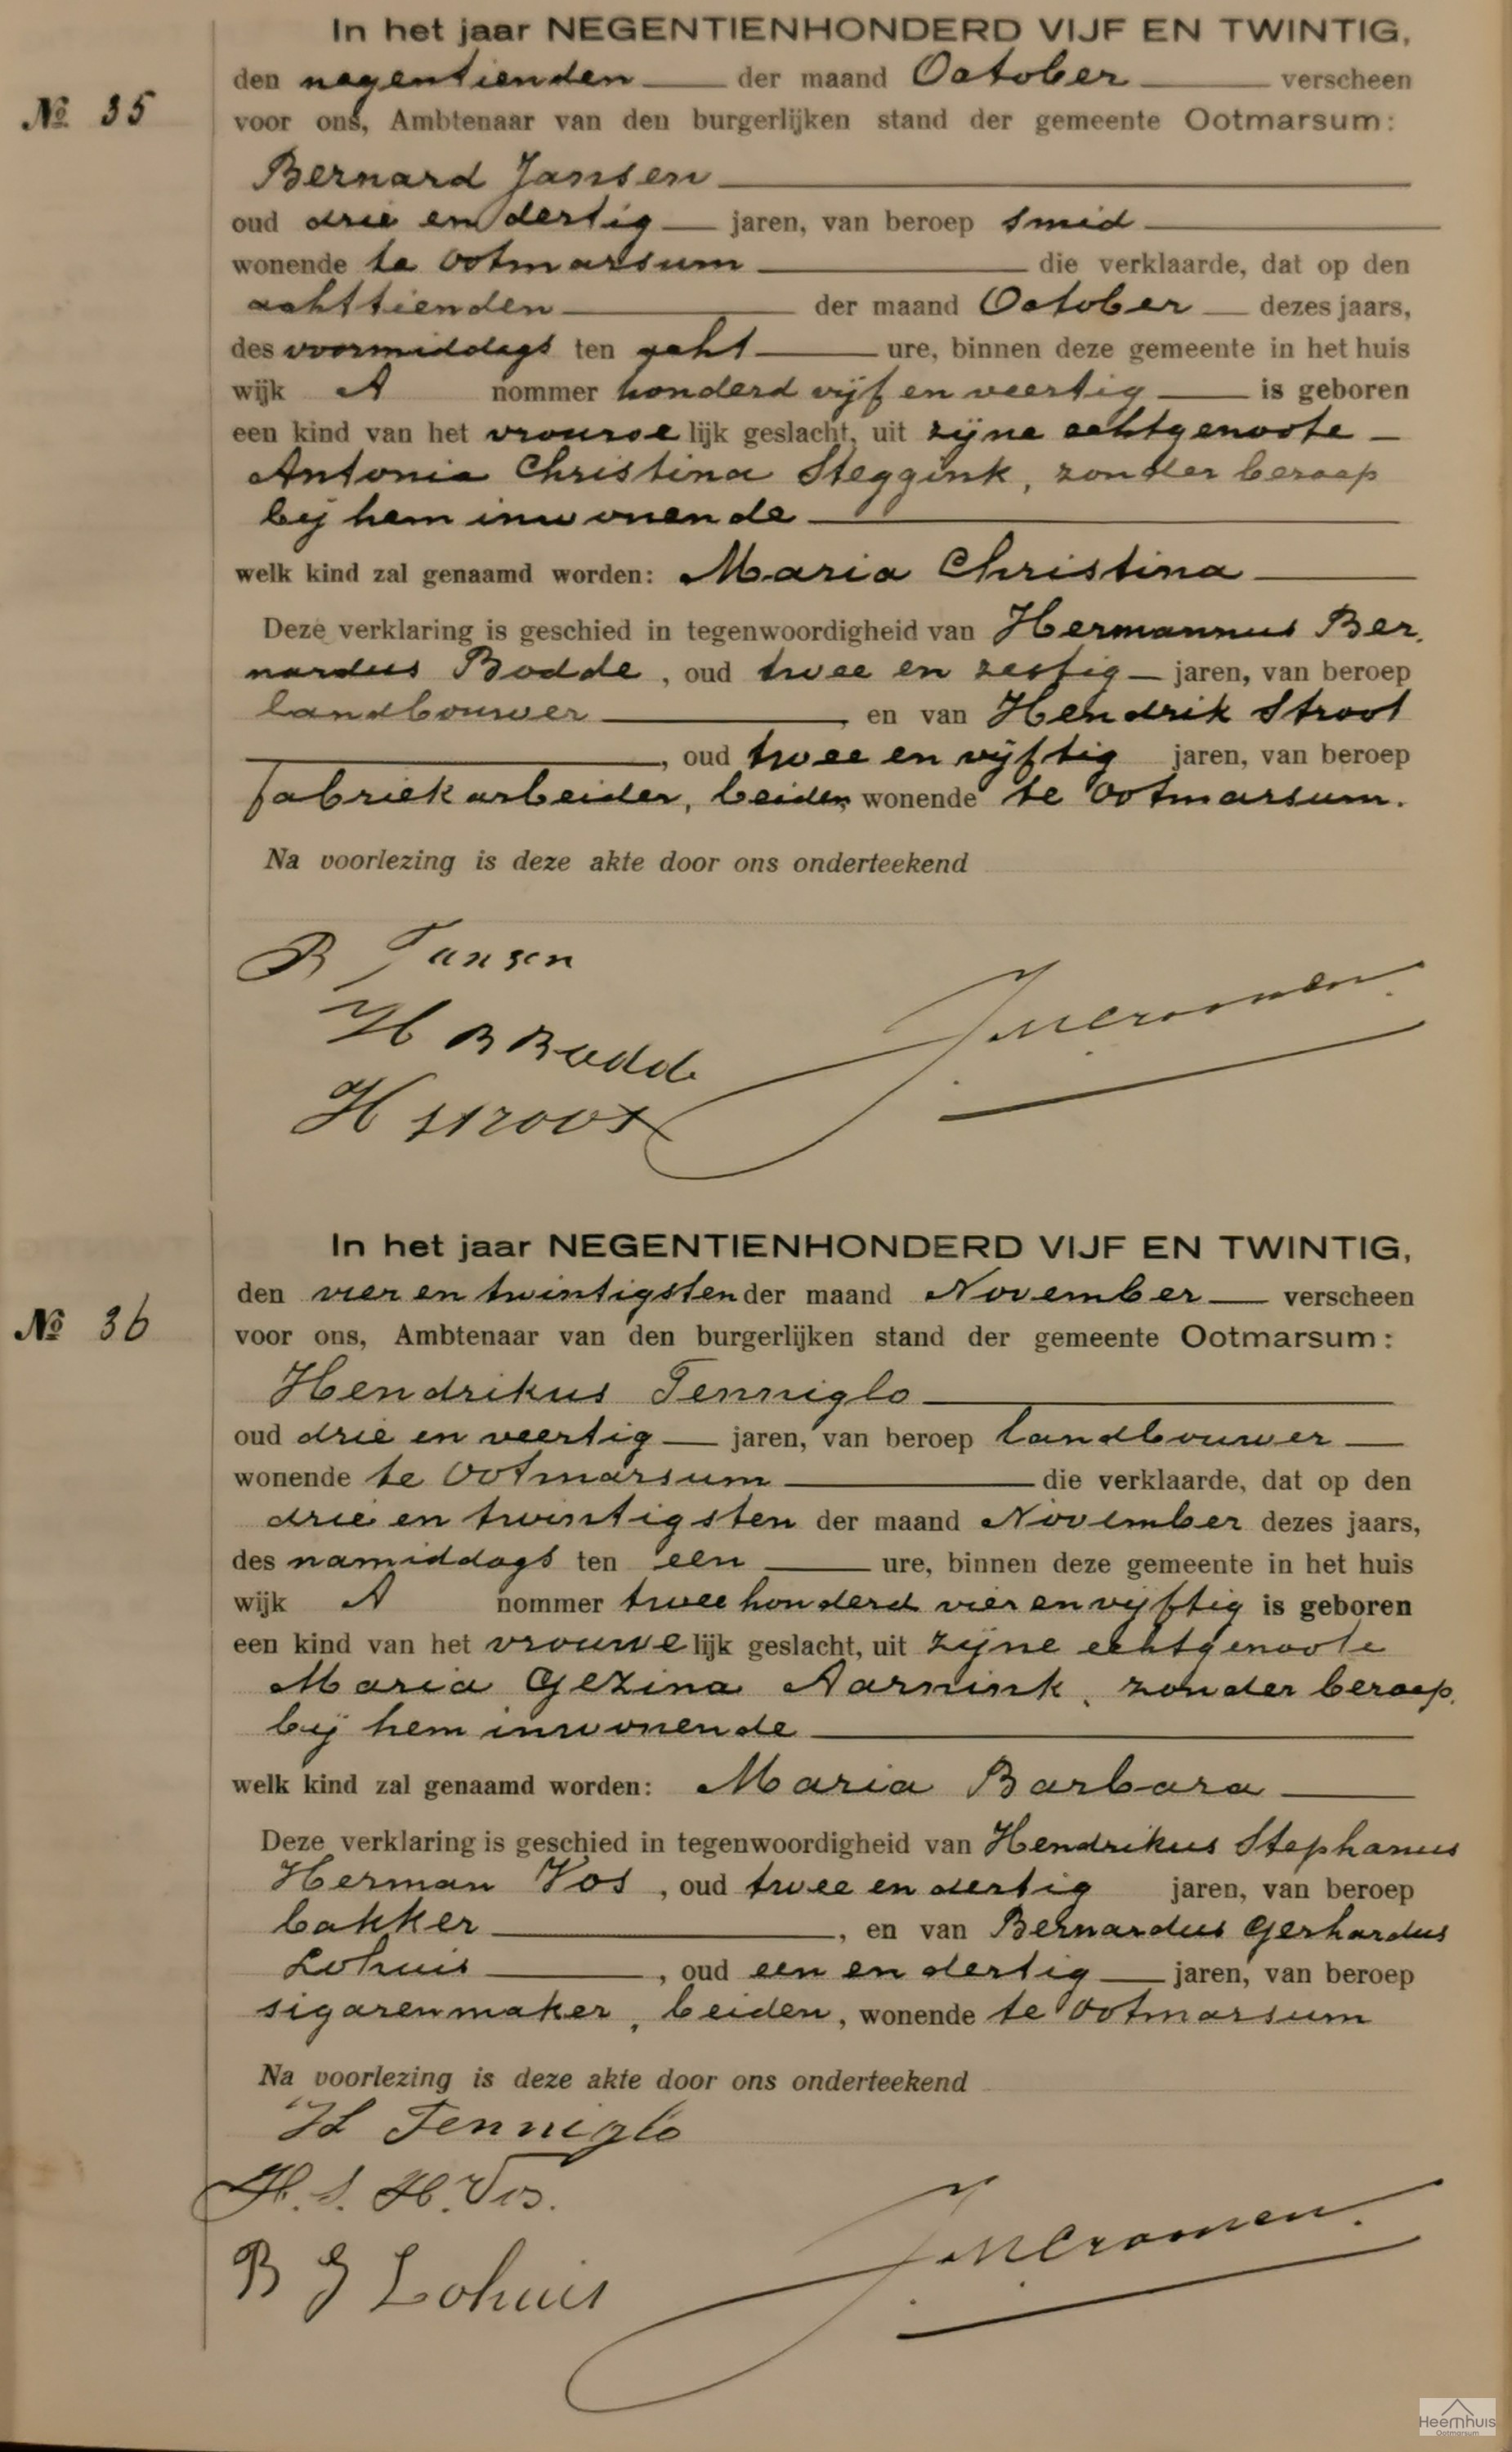 In het jaar NEGENTIENHONDERD VIJF EN TWINTIG,
den negentienden der maand October verscheen
№ 35
voor ons, Ambtenaar van den burgerlijken stand der gemeente Ootmarsum:
Bernard Jansen
oud drie en dertig jaren, van beroep smid
wonende te Ootmarsum die verklaarde, dat op den
achttienden der maand October dezes jaars,
des voormiddags ten acht ure, binnen deze gemeente in het huis
wijk A nommer honderd vijf en veertig is geboren
een kind van het vrouwelijk geslacht, uit zijne echtgenoote
Antonia Christina Steggink, zonder beroep
bij hem inwonende
welk kind zal genaamd worden: Maria Christina
Deze verklaring is geschied in tegenwoordigheid van Hermannus Ber.
nardus Bodde, oud twee en zestig jaren, van beroep
landbouwer, en van Hendrik Stroot
, oud twee en vijftig jaren, van beroep
fabriekarbeider, beiden wonende te Ootmarsum.
Na voorlezing is deze akte door ons onderteekend
B Jansen
H B Bodde
H Stroot
In het jaar NEGENTIENHONDERD VIJF EN TWINTIG,
den vier en twintigsten der maand November verscheen
№ 36
voor ons, Ambtenaar van den burgerlijken stand der gemeente Ootmarsum:
Hendrikus Tenniglo
oud drie en veertig jaren, van beroep landbouwer
wonende te Ootmarsum die verklaarde, dat op den
drie en twintigsten der maand November dezes jaars,
des namiddags ten een ure, binnen deze gemeente in het huis
wijk A nommer twee honderd vier en vijftig is geboren
een kind van het vrouwelijk geslacht, uit zijne echtgenoote
Maria Gezina Aarnink, zonder beroep,
bij hem inwonende
welk kind zal genaamd worden: Maria Barbara
Deze verklaring is geschied in tegenwoordigheid van Hendrikus Stephanus
Herman Vos, oud twee en dertig jaren, van beroep
bakker, en van Bernardus Gerhardus
Lohuis, oud een en dertig jaren, van beroep
sigarenmaker, beiden, wonende te Ootmarsum
Na voorlezing is deze akte door ons onderteekend
H Tenniglo
H. S. H. Vos.
B G Lohuis
Heemhuis
Ootmarsum